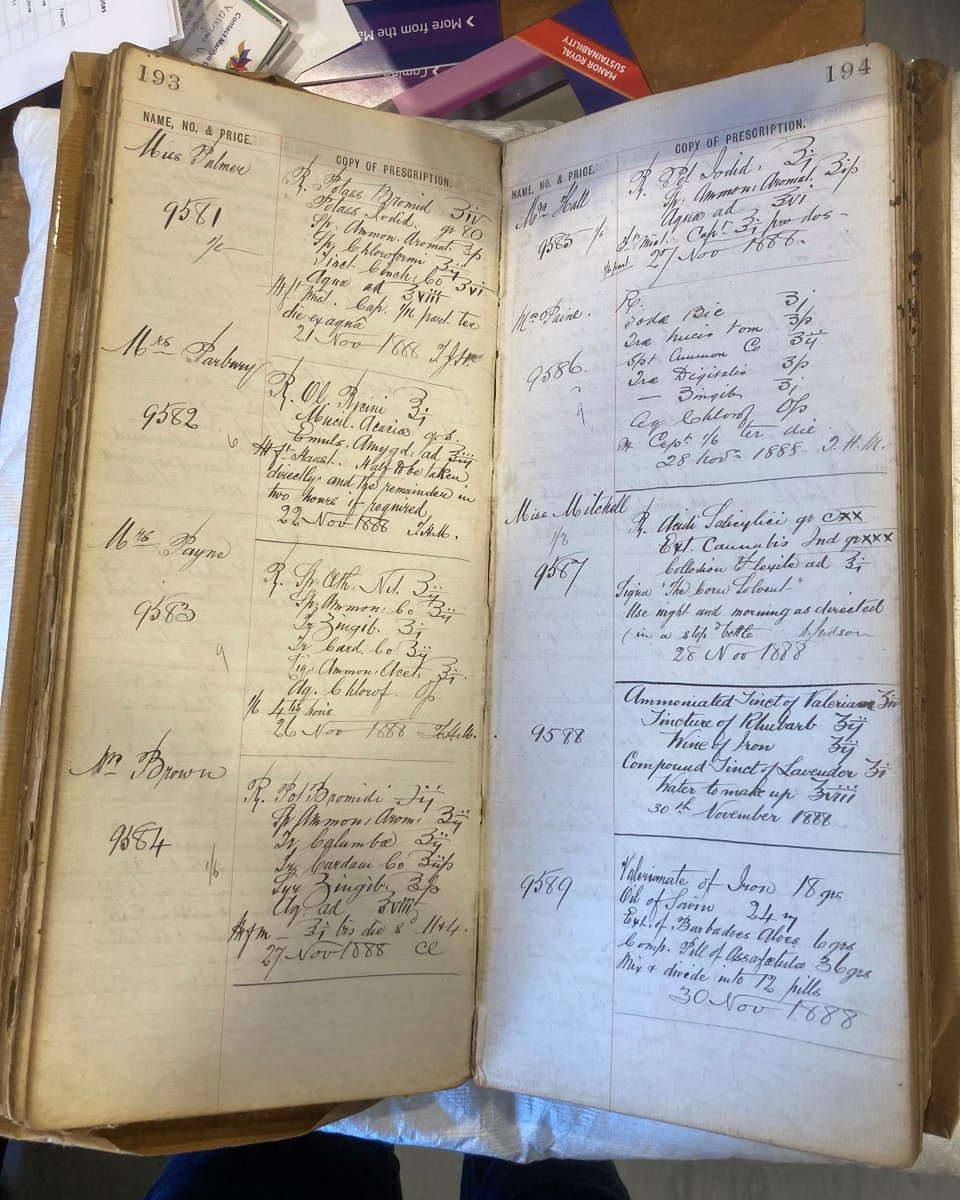 More from the Ma
Coming
MANOR ROYAL
SUSTAINABILITY
Contact Martyn
French
193
NAME, NO. & PRICE.
COPY OF PRESCRIPTION.
Miss Palmer
9581
1/6
℞ Potass Bromid ʒiv
Potass Iodid. gr 80
Sp. Ammon. Aromat.
Sp. Chloroformi ʒij
Tinct Cinch: Co ʒvi
Aquæ ad ℥viii
Mist. Cap. part. ter
die ex aquâ
21 Nov 1888
Mrs Parbury
9582
6
℞ Ol. Ricini
Mucil. Acaciæ q. s.
Emuls. Amygd: ad
Haust. Half to be taken
directly and the remainder in
two hours if required
22 Nov 1888 T.H.M.
Mrs Payne
9583
9
℞ Sp. Æth. Nit. ʒij
Sp. Ammon: Co ʒij
Tr Zingib. ʒi
Tr Card. Co ʒij
Liq: Ammon: Acet.
Aq. Chlorof.
1/6 4tis horis
26 Nov 1888 T.H.M.
Mr Brown
9584
1/6
℞ Pot: Bromidi ʒij
Sp. Ammon: Arom: ʒij
Tr Calumbæ ʒij
Tr Cardam Co
Syr Zingib.
Aq. ad ℥viii
bis die 11 & 4.
27 Nov 1888
194
NAME, NO. & PRICE.
COPY OF PRESCRIPTION.
Mrs Hall
9585
℞ Pot Iodid: ʒi
Sp. Ammon: Aromat.
Aquæ ad ℥vi
Ft Mist. Capt pro dos
27 Nov 1888.
Mrs Paine.
9586
9
℞
Sodæ Bic ʒi
Træ Nucis Vom
Spt Ammon Co ʒij
Træ Digitalis
— Zingib ʒi
Aq Chlorof
Capt 1/6 ter die
28 Novr 1888. T.H.M.
Miss Mitchell
1/3
9587
℞ Acidi Salicylici gr cxx
Ext. Cannabis Ind grxxx
Collodion Flexile ad
Signa "The Corn Solvent"
Use night and morning as directed
(in a stop'd bottle Judson
28 Nov 1888
9588
Ammoniated Tinct of Valerian
Tincture of Rhubarb ʒij
Wine of Iron ʒij
Compound Tinct of Lavender ʒi
Water to make up ℥viii
30th November 1888
9589
Valerianate of Iron 18 grs
Oil of Savin 24 ♏
Ext. of Barbadoes Aloes 6 grs
Comp. Pill of Assafœtida 36 grs
Mix & divide into 12 pills
30 Nov 1888